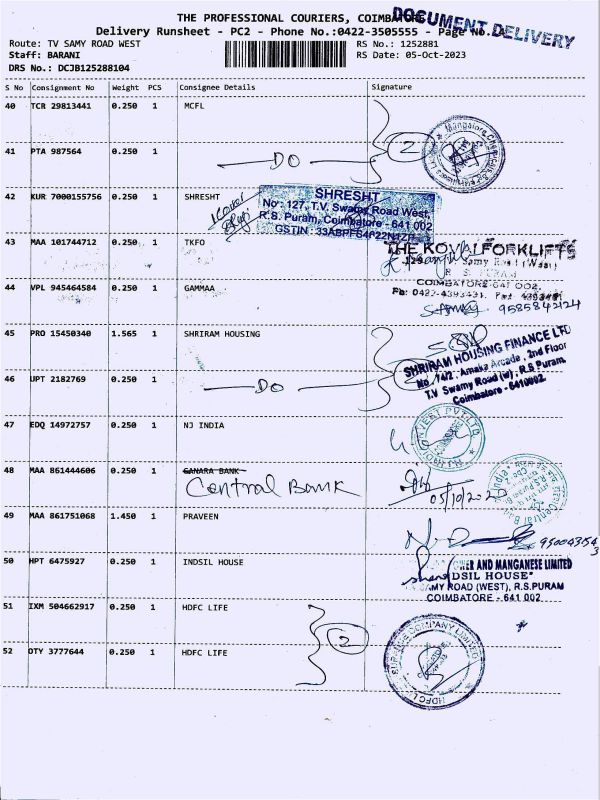 THE PROFESSIONAL COURIERS, COIMBATORE
DOCUMENT DELIVERY
Delivery Runsheet - PC2 - Phone No.:0422-3505555 - Page No.
Route: TV SAMY ROAD WEST RS No.: 1252881
Staff: BARANI RS Date: 05-Oct-2023
DRS No.: DCJB125288104
S No Consignment No Weight PCS Consignee Details Signature
40 TCR 29813441 0.250 1 MCFL
2
41 PTA 987564 0.250 1
DO
42 KUR 7000155756 0.250 1 SHRESHT
SHRESHT
No: 127, T.V. Swamy Road West,
R.S. Puram, Coimbatore - 641 002
43 MAA 101744712 0.250 1 TKFO
THE KOVAI FORKLIFTS
R S PURAM
44 VPL 945464584 0.250 1 GAMMAA
COIMBATORE-641 002.
Ph: 0422-4393431,
9585842124
45 PRO 15450340 1.565 1 SHRIRAM HOUSING
SHRIRAM HOUSING FINANCE LTD
No. 74/2, Amaka Arcade, 2nd Floor
T.V Swamy Road (w), R.S Puram,
Coimbatore - 641002.
46 UPT 2182769 0.250 1
DO
47 EDQ 14972757 0.250 1 NJ INDIA
48 MAA 861444606 0.250 1 CANARA BANK
Central Bank
49 MAA 861751068 1.450 1 PRAVEEN
50 HPT 6475927 0.250 1 INDSIL HOUSE
AND MANGANESE LIMITED
DSIL HOUSE"
AMY ROAD (WEST), R.S.PURAM
COIMBATORE - 641 002
51 IXM 504662917 0.250 1 HDFC LIFE
2
52 OTY 3777644 0.250 1 HDFC LIFE